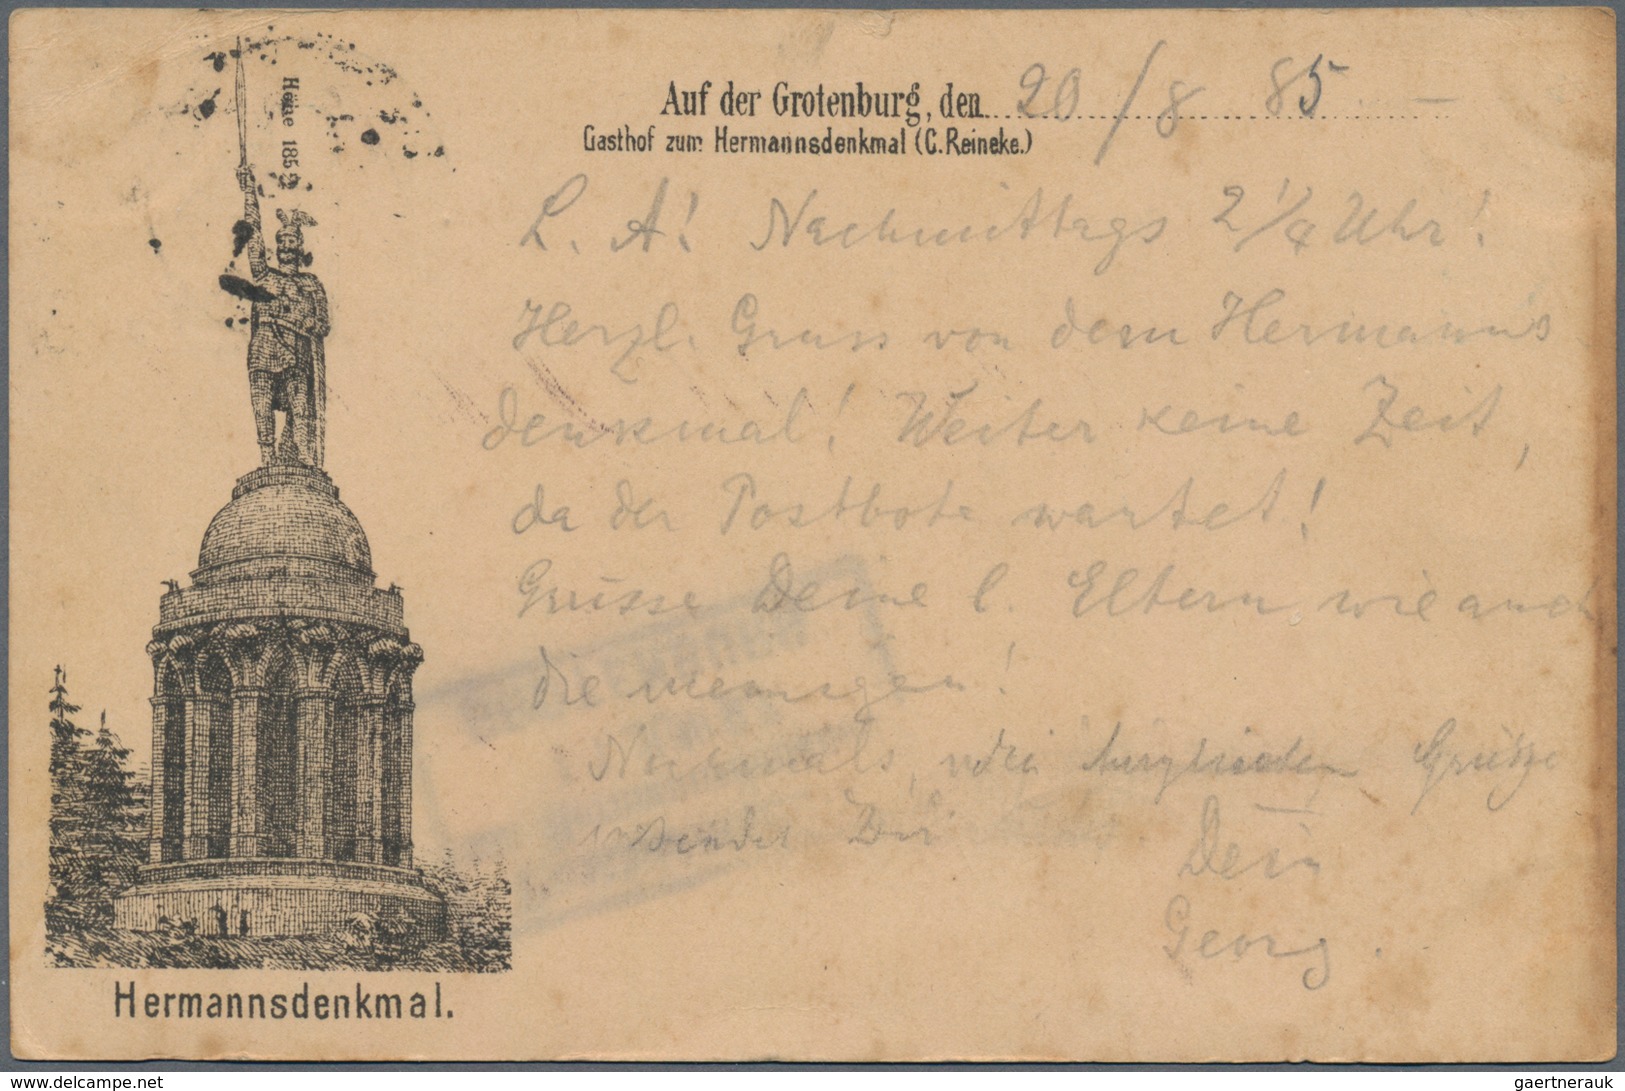 Auf der Grotenburg, den 20/8 85
Gasthof zum Hermannsdenkmal (C. Reineke.)
Höhe 185
L. A! Nachmittags 2 1/4 Uhr!
Herzl. Gruss von dem Hermanns
denkmal! Weiter keine Zeit,
da der Postbote wartet!
Grüsse Deine l. Eltern wie auch
die meinigen!
Nochmals, Grüße
sendet Dir
Dein
Georg.
Hermannsdenkmal.
www.delcampe.net
gaertnerauk